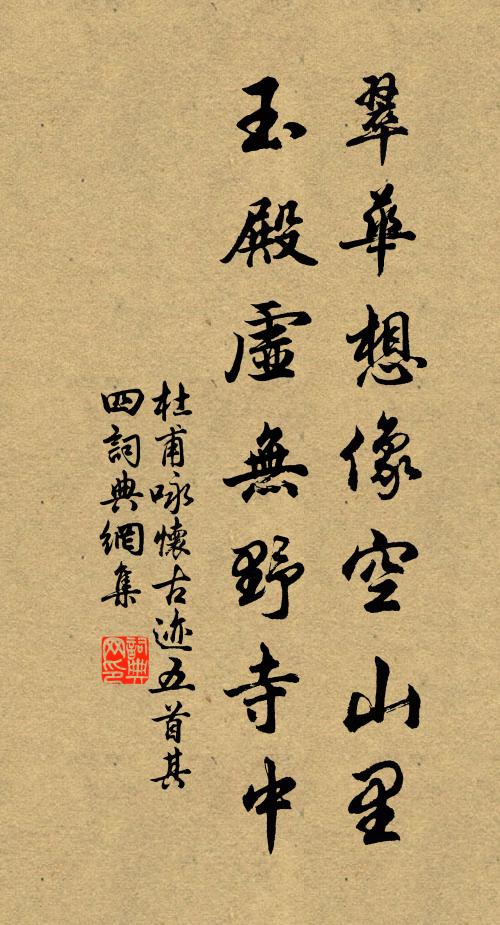 翠華想像空山里
玉殿虛無野寺中
杜甫咏懷古迹五首其
四詞典網集
詞典网印